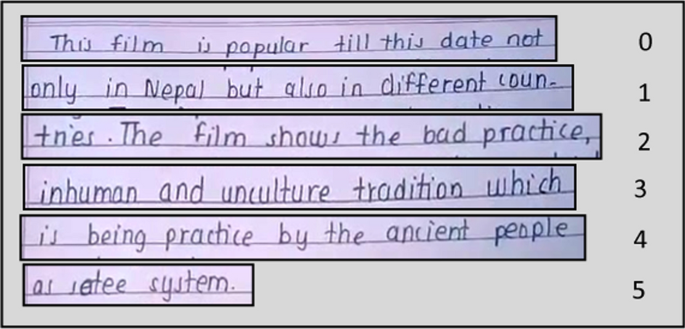 This film is popular till this date not 0
only in Nepal but also in different coun- 1
tries. The film shows the bad practice, 2
inhuman and unculture tradition which 3
is being practice by the ancient people 4
as setee system. 5